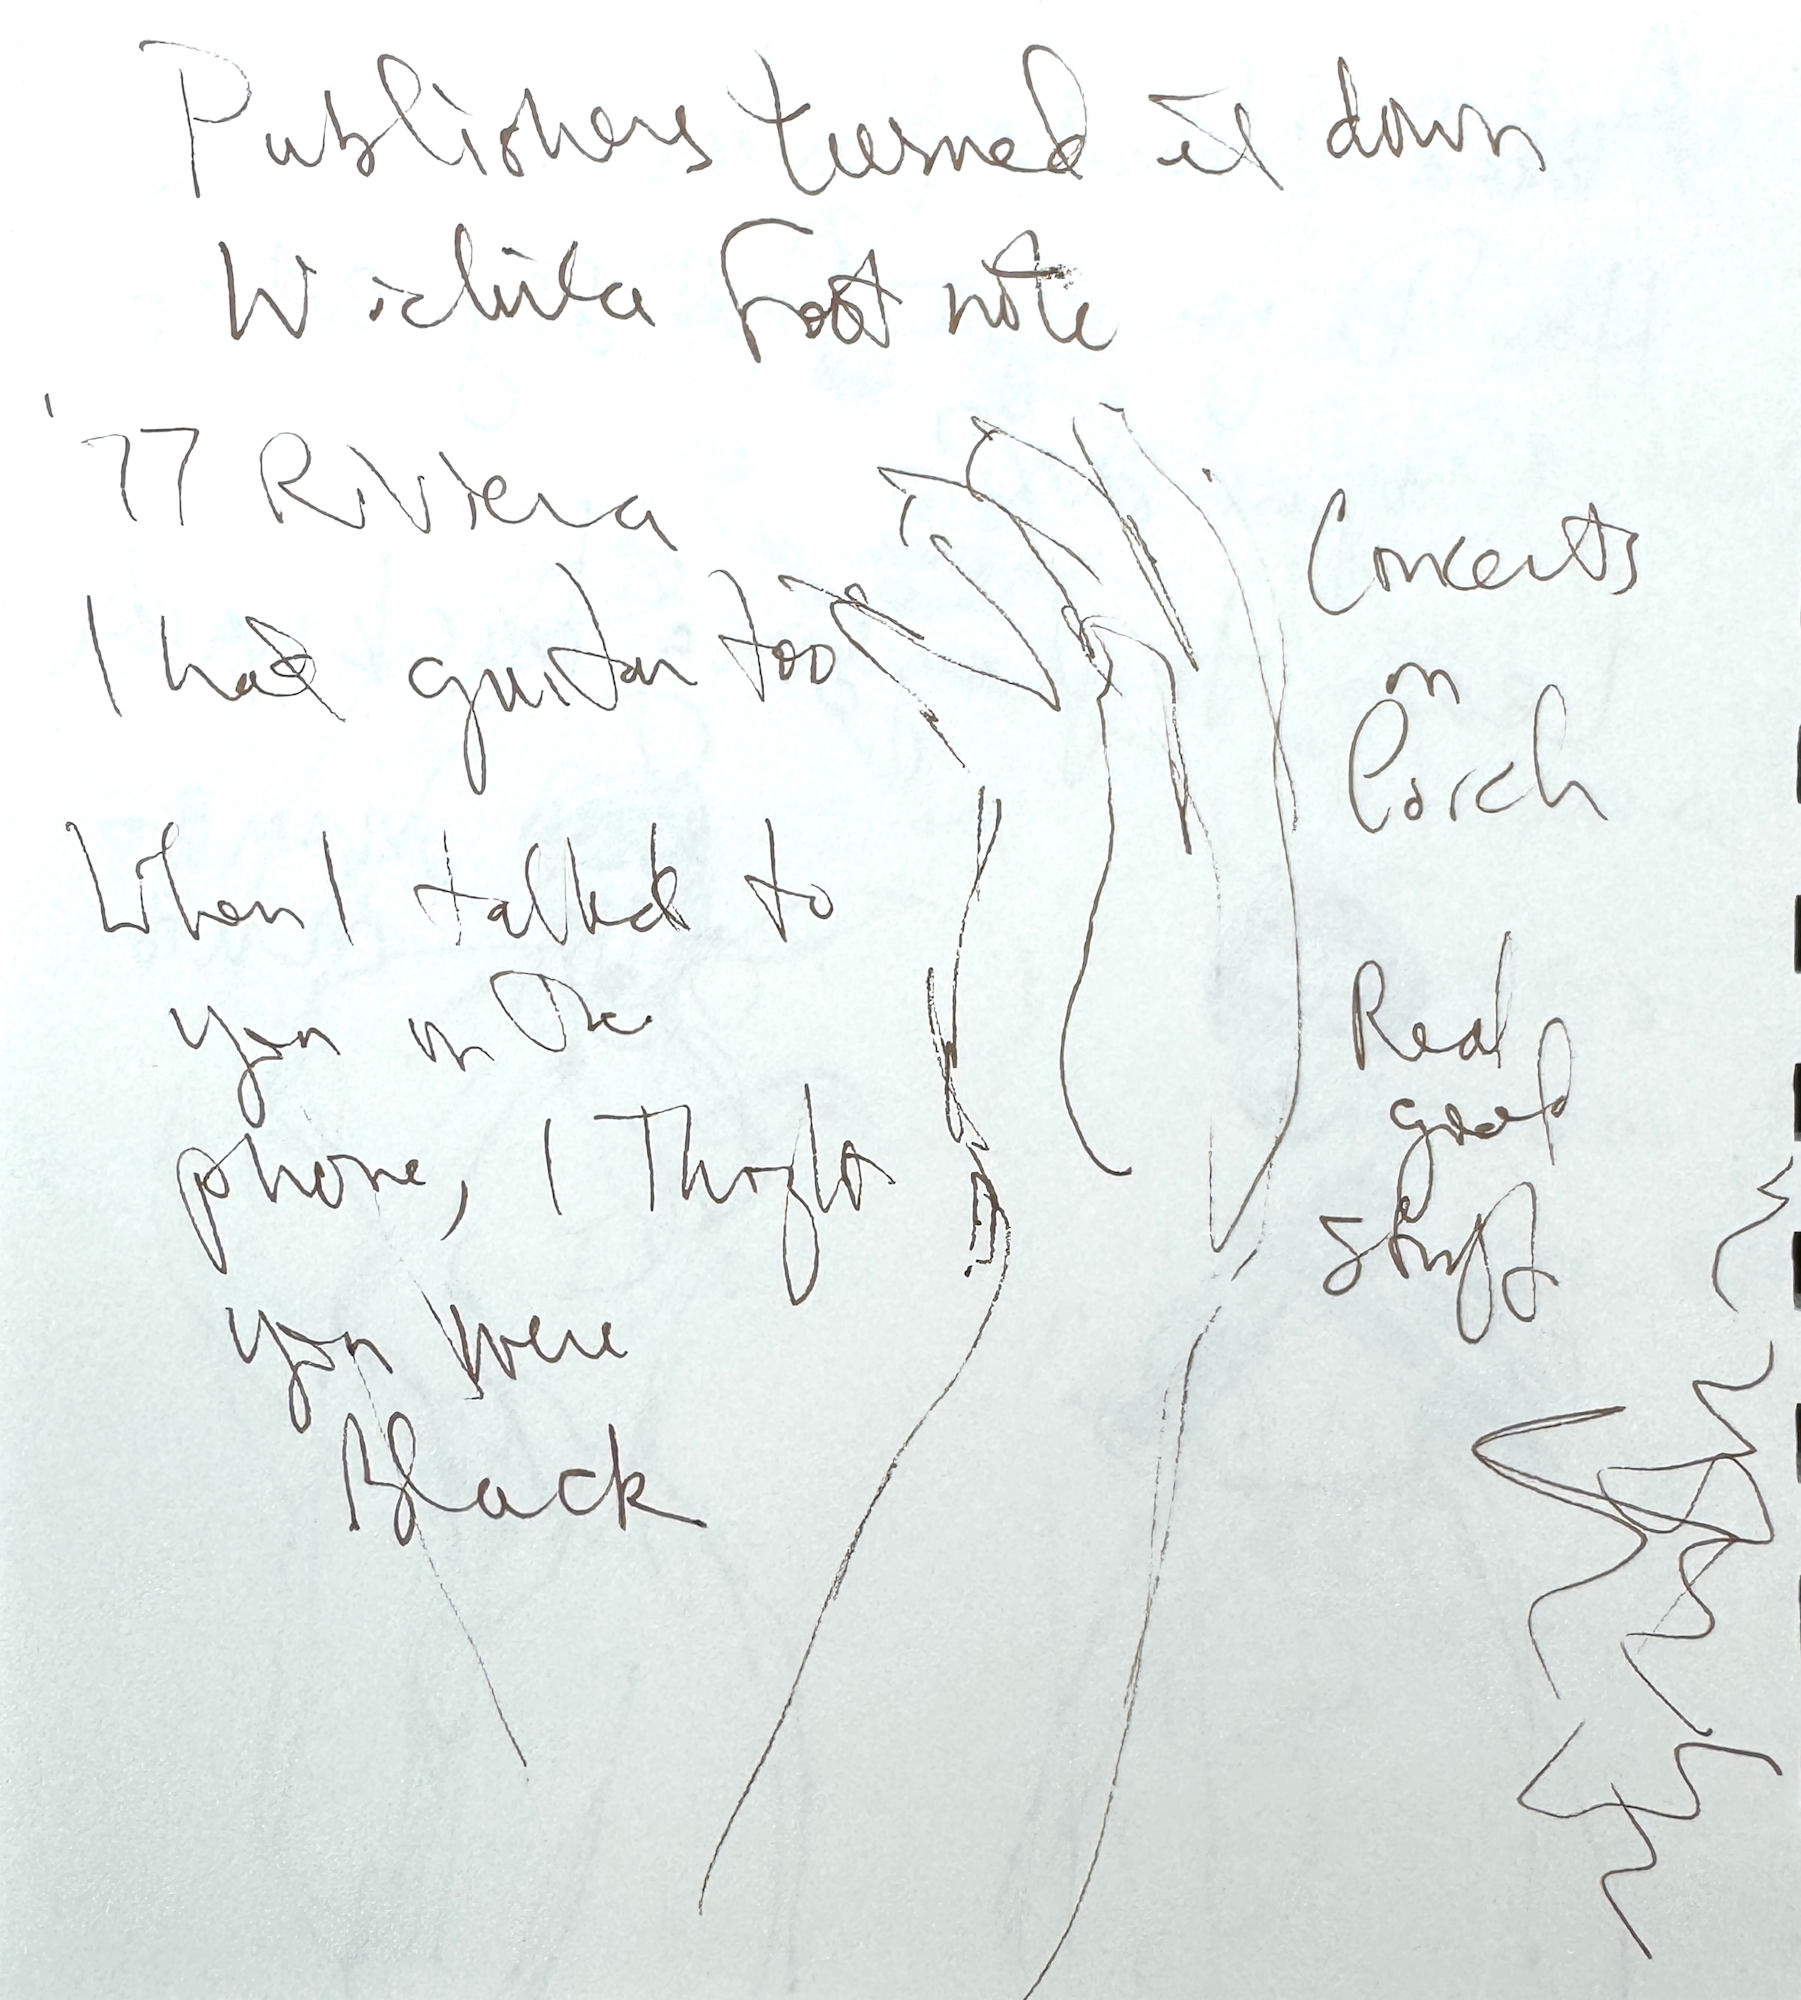 Publishers turned it down
Wichita Foot note
'77 Riviera
I had guitar too
When I talked to
you on the
phone, I thought
you were
Black
Concerts
on
Porch
Real
good
stuff